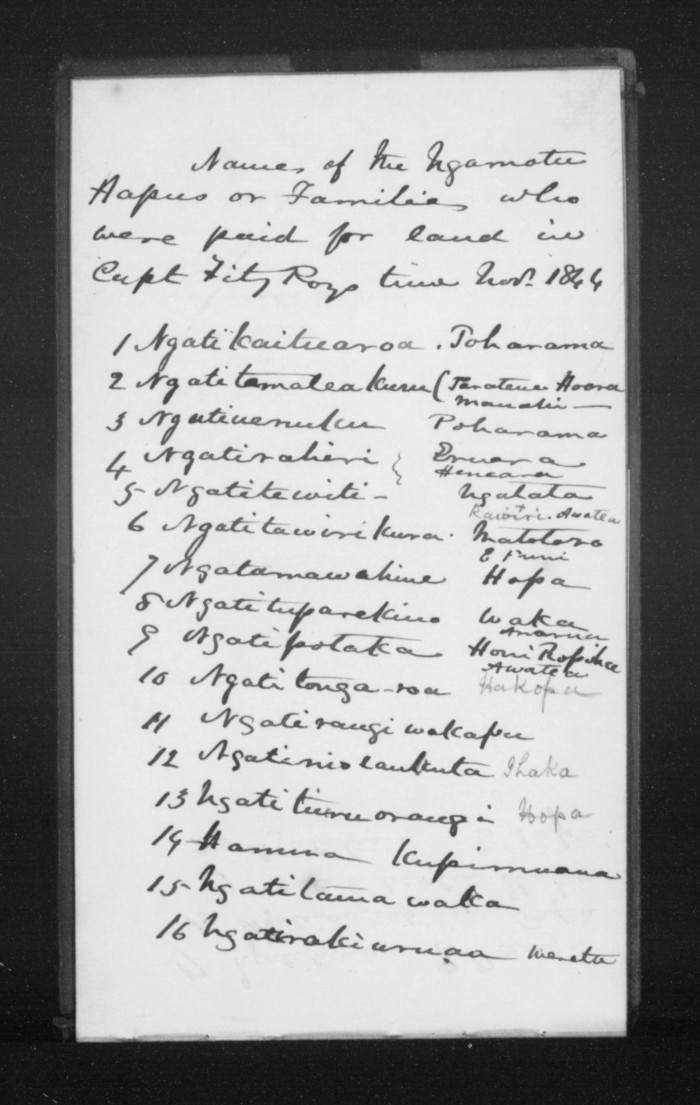 Names of the Ngamotu
Hapus or Families who
were paid for land in
Capt Fitz Roys time Novr. 1844
1 Ngatikaituaroa . Poharama
2 Ngatitamateakuru ( Hoera
3 Ngatiuenuku Poharama
4 Ngatiraheri { Eruera
5 Ngatitewiti - Ngatata
Rawiri. Awatea
6 Ngatitawirikura. Matotoro
E Puni
7 Ngatamawahine Hopa
8 Ngatituparekino Waka
9 Ngatipotaka Honi Ropiha
Awatea
10 Ngatitonga-roa Hakopa
11 Ngatirangiwakapu
12 Ihaka
13 Ngatituruorangi Hopa
14 Hamua Kupimuana
15 Ngatitamawaka
16 Ngatirakiuruaa Weretu